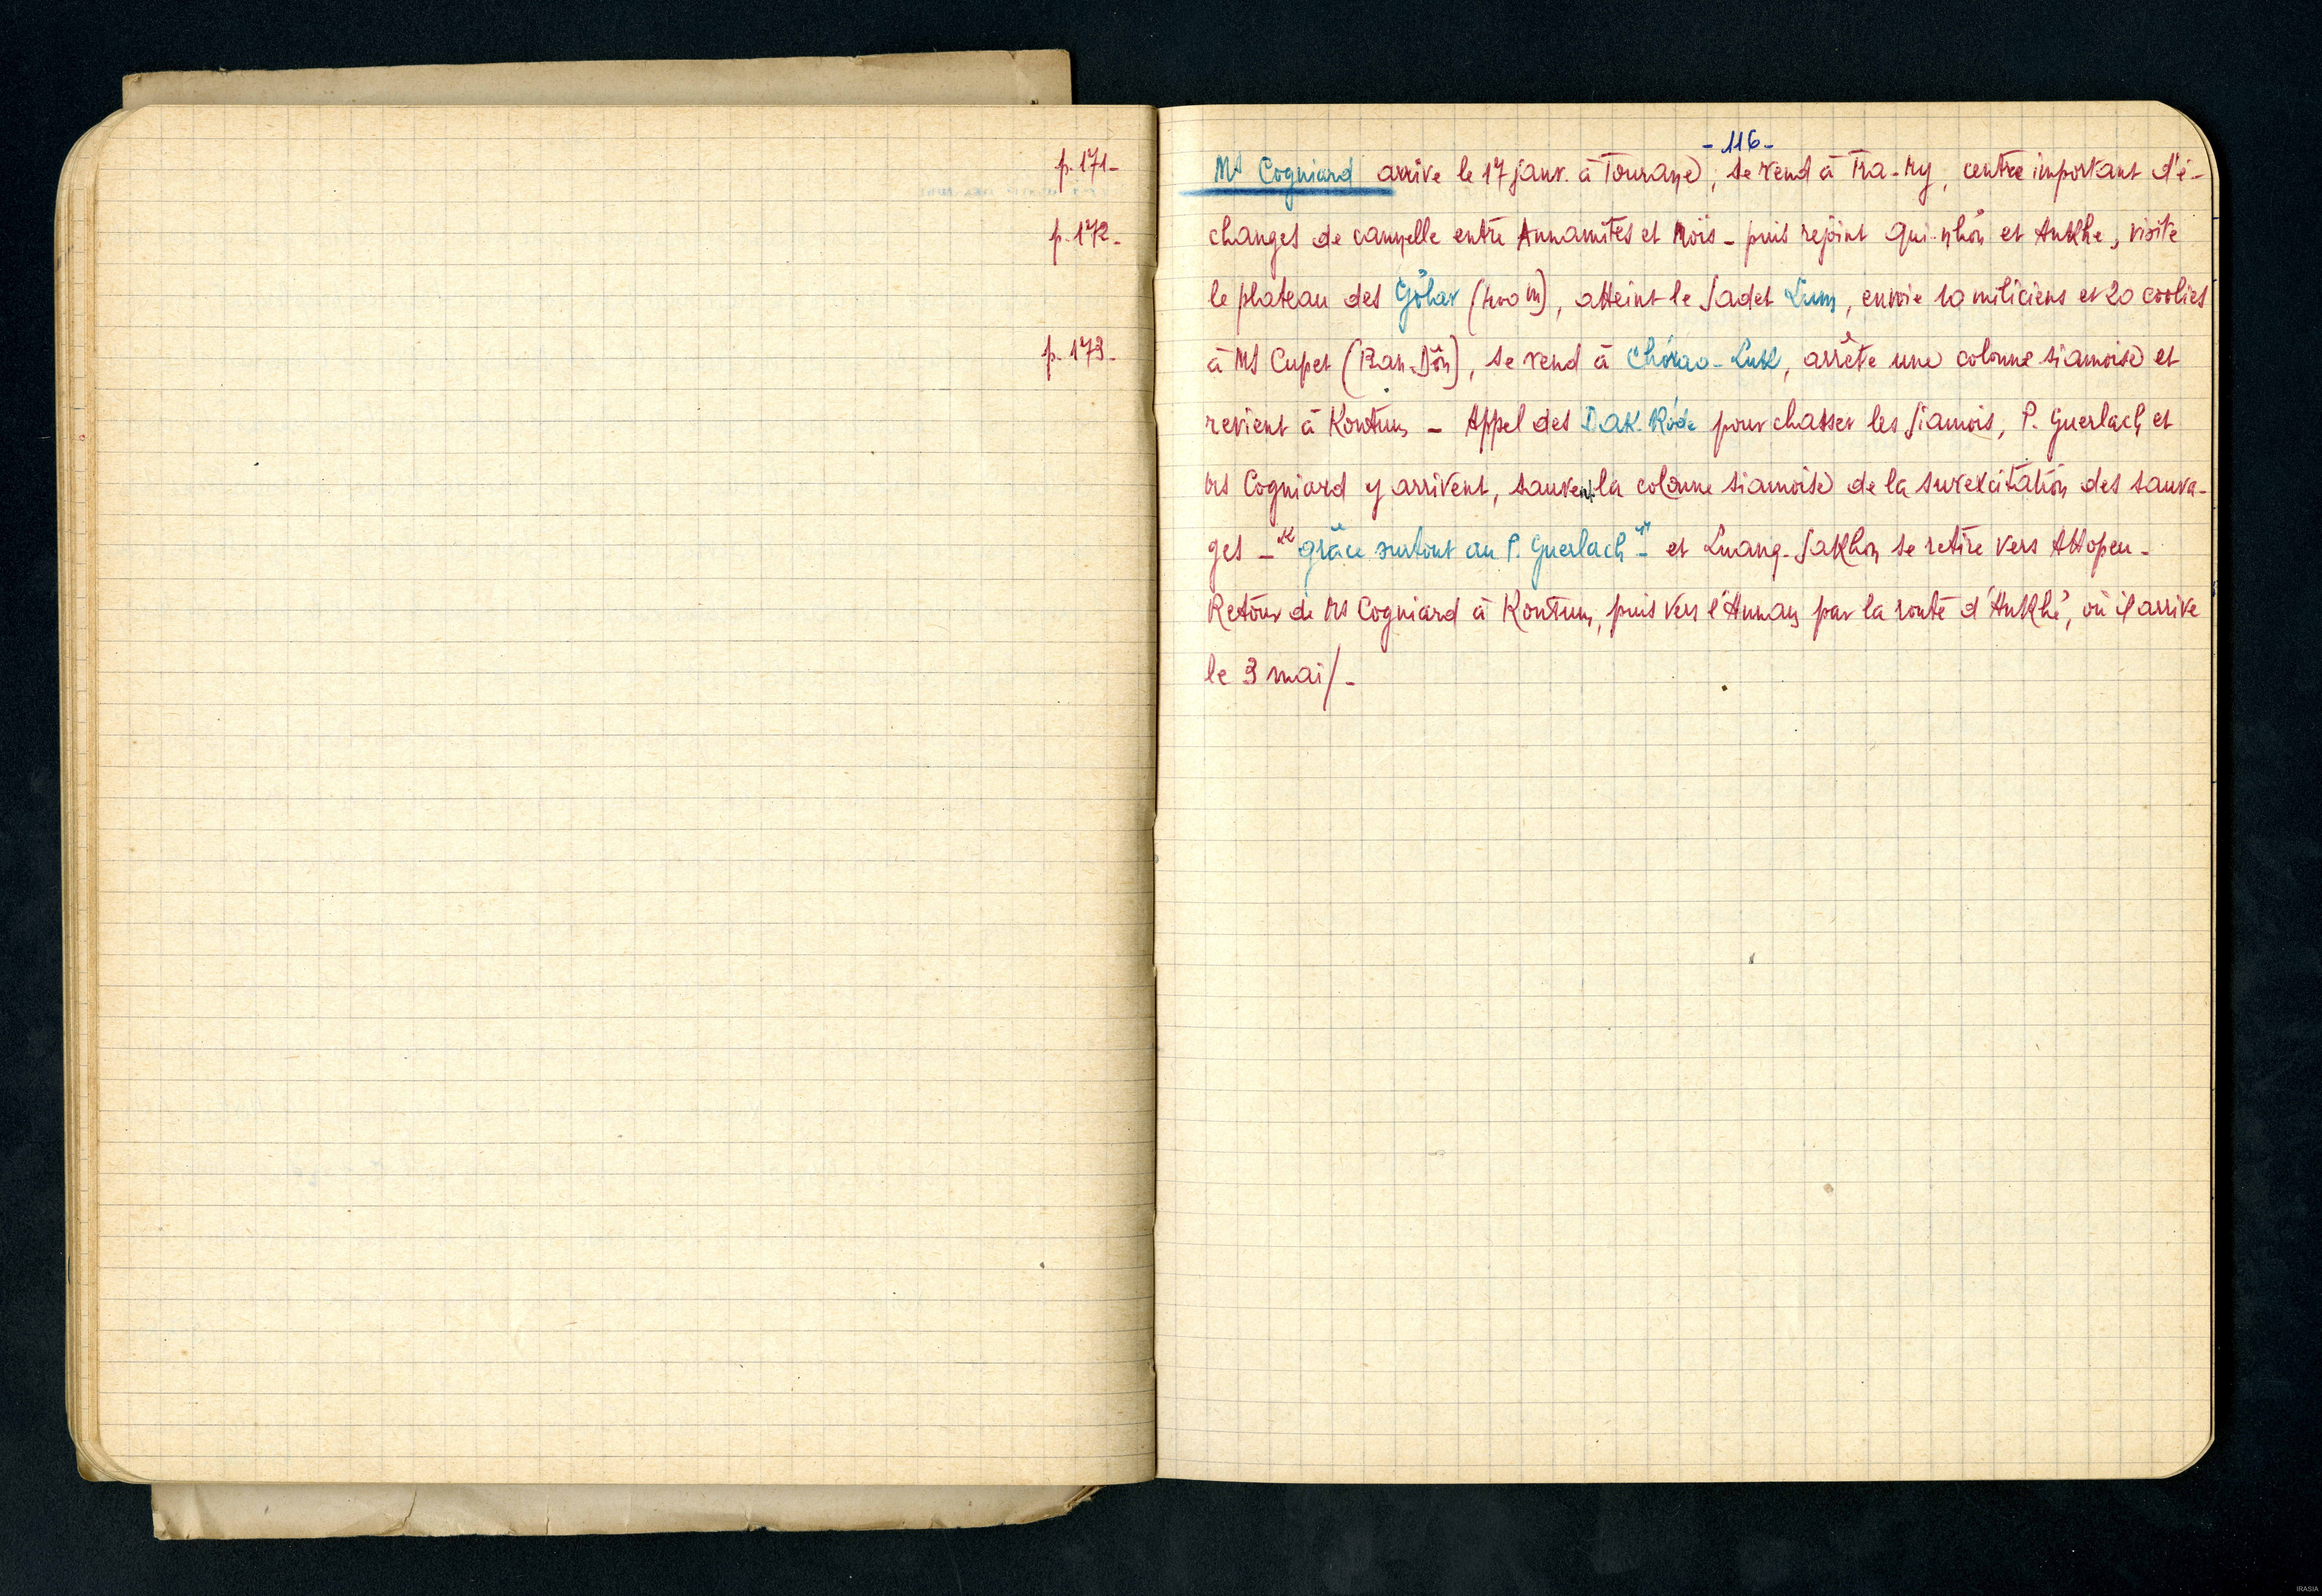 p. 171-
p. 172-
p. 173-
- 116 -
Mr Cogniard arrive le 17 janv. à Tourane, se rend à Tra-My, centre important d'é-
changes de cannelle entre Annamites et Moïs - puis rejoint Qui-nhơn et Ankhe, visite
le plateau des Gơlar (400 m), atteint le Sadet Lum, envoie 10 miliciens et 20 coolies
à Mr Cupet (Ban-Dôn), se rend à Chơrao-Luk, arrête une colonne siamoise et
revient à Kontum - Appel des DAK. Rơde pour chasser les Siamois, P. Guerlach et
Mr Cogniard y arrivent, sauvent la colonne siamoise de la surexcitation des sauva-
ges - "grâce surtout au P. Guerlach" - et Luang-Sakhon se retire vers Attopeu -
Retour de Mr Cogniard à Kontum, puis vers l'Annam par la route d'Ankhé, où il arrive
le 3 mai/-
IRASIA